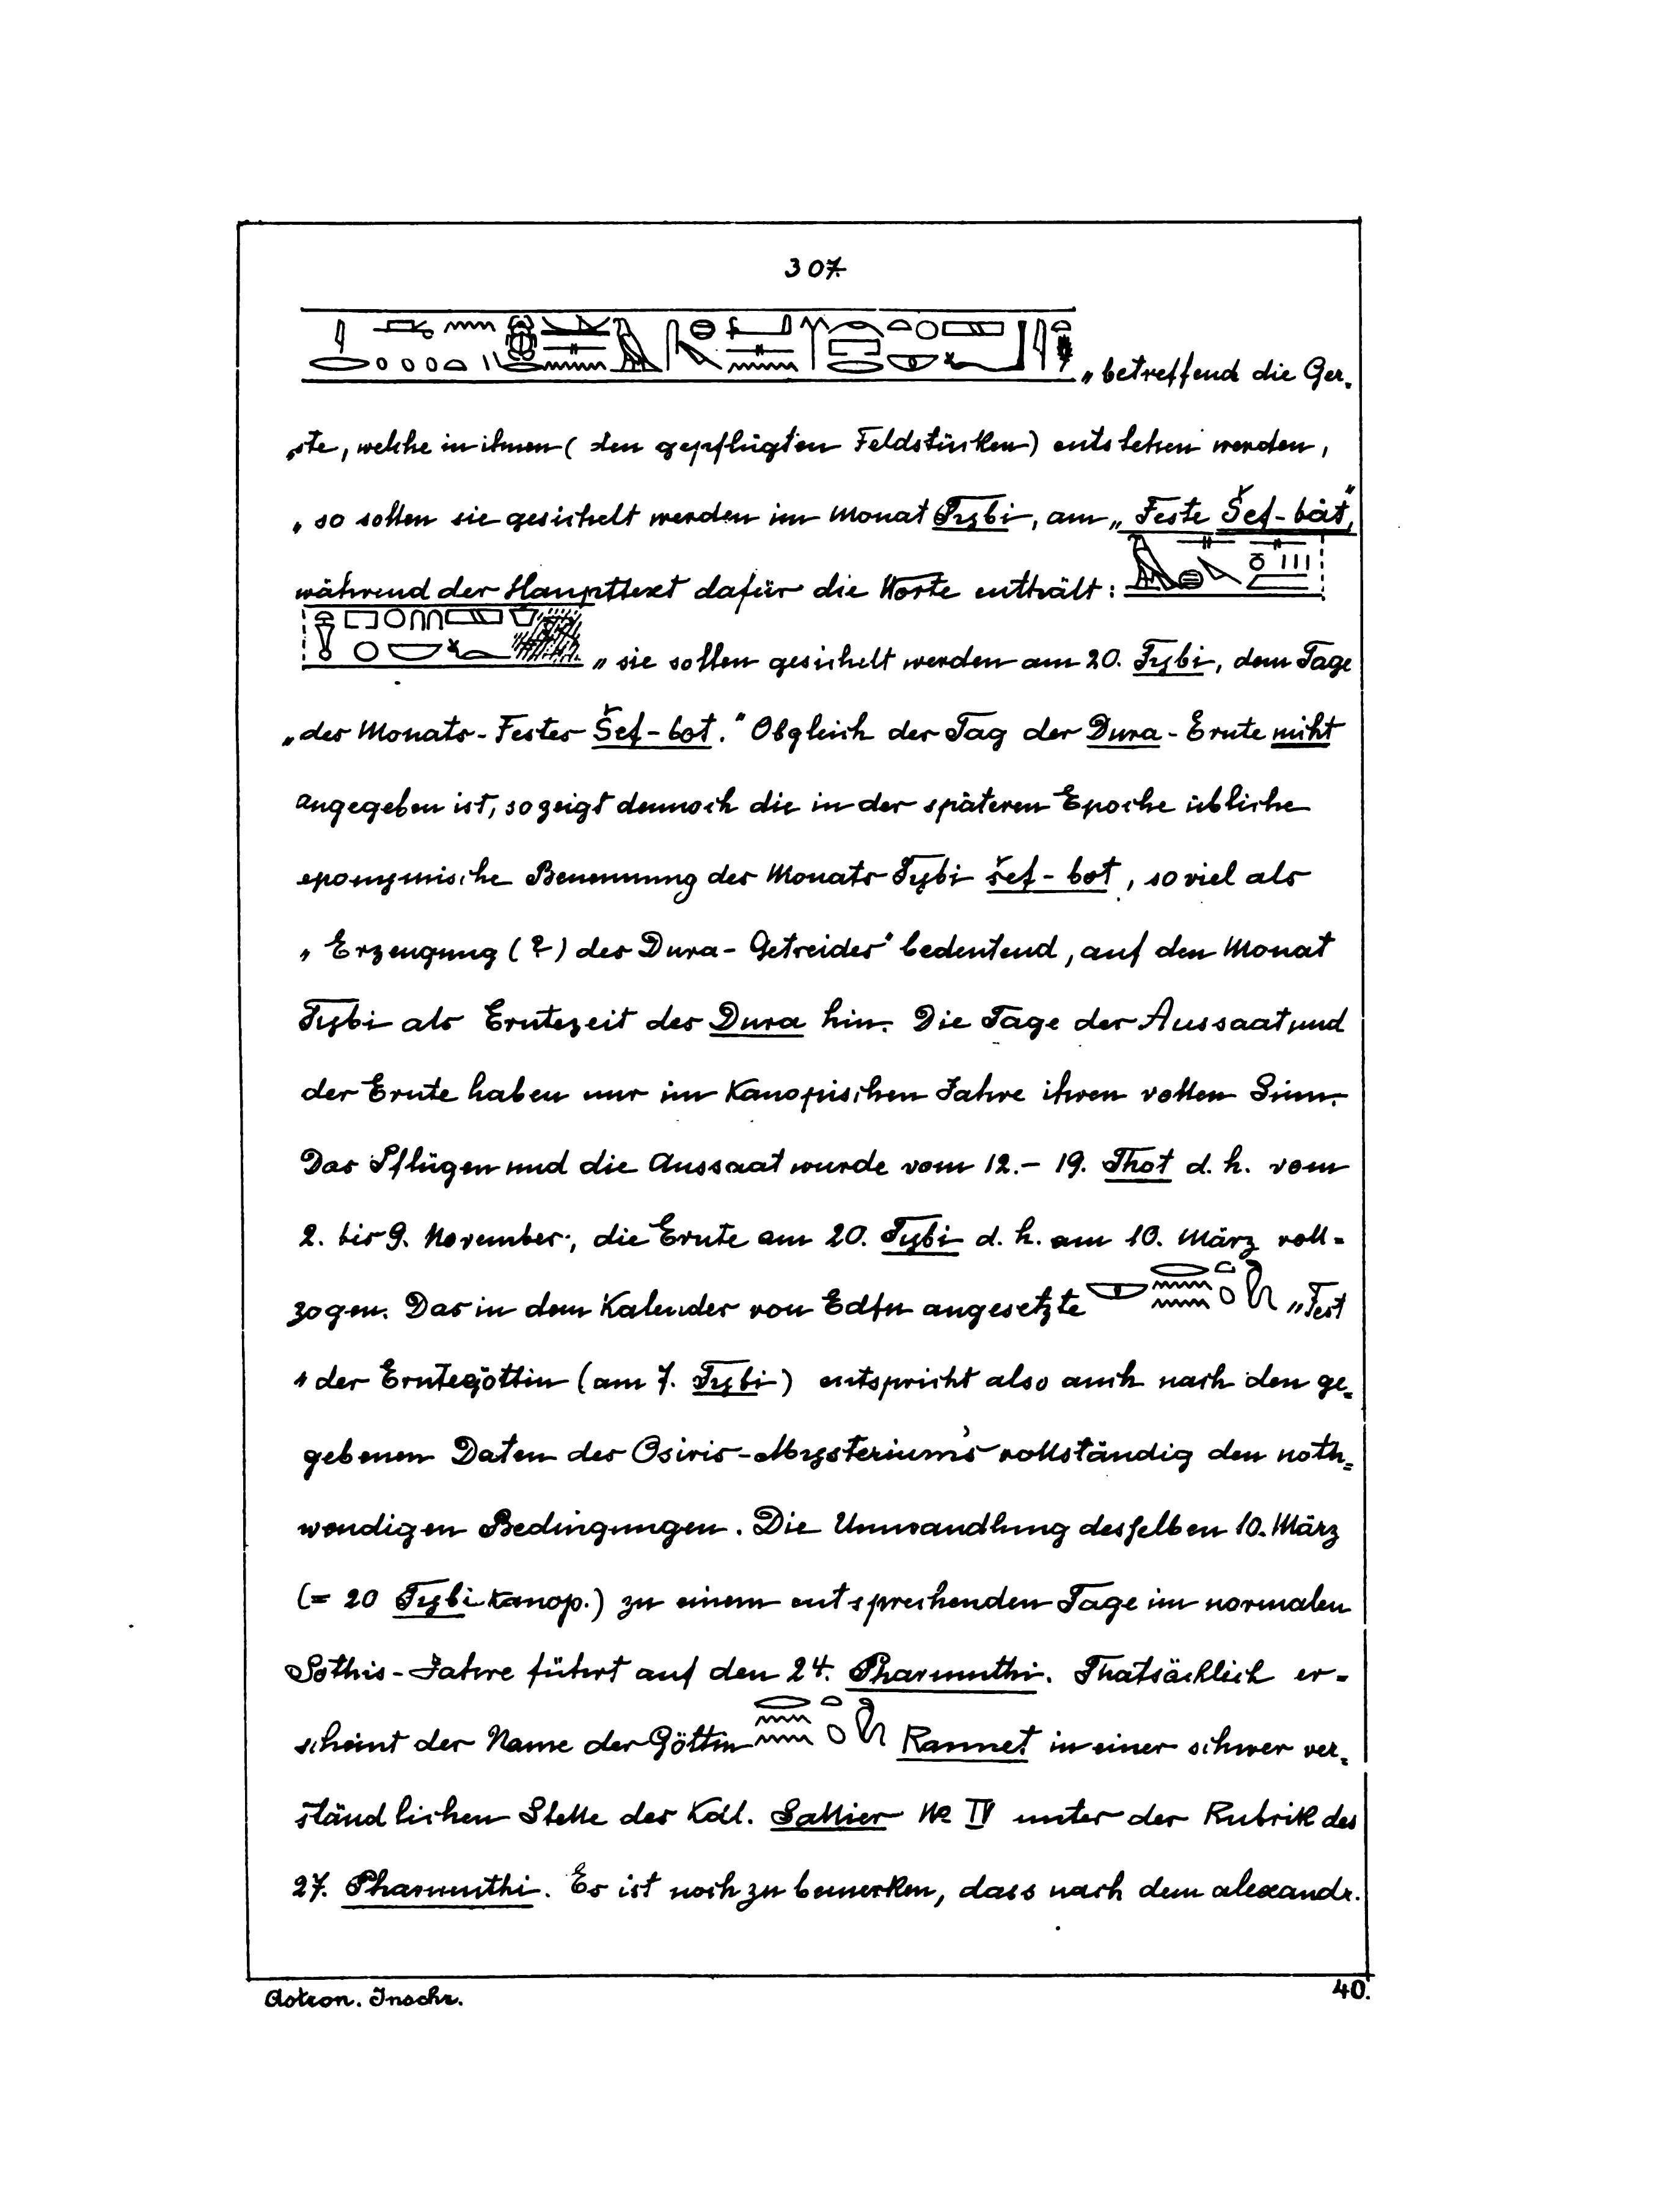 307
„betreffend die Ger-
„ste, welche in ihnen (den gepflügten Feldstücken) entstehen werden,
„so sollen sie gesichelt werden im Monat Tybi, am „Feste Šef-bât",
während der Haupttext dafür die Worte enthält:
„sie sollen gesichelt werden am 20. Tybi, dem Tage
„des Monats-Festes Šef-bot." Obgleich der Tag der Dura-Ernte nicht
angegeben ist, so zeigt dennoch die in der späteren Epoche übliche
eponymische Benennung des Monats Tybi šef-bot, so viel als
„Erzeugung (?) des Dura-Getreides" bedeutend, auf den Monat
Tybi als Erntezeit des Dura hin. Die Tage der Aussaat und
der Ernte haben nur im Kanopischen Jahre ihren vollen Sinn.
Das Pflügen und die Aussaat wurde vom 12.- 19. Thot d. h. vom
2. bis 9. November, die Ernte am 20. Tybi d. h. am 10. März voll=
zogen. Das in dem Kalender von Edfu angesetzte „Fest
„der Erntegöttin (am 7. Tybi) entspricht also auch nach den ge=
gebenen Daten des Osiris-Mysterium's vollständig den noth=
wendigen Bedingungen. Die Umwandlung desselben 10. März
(= 20 Tybi Kanop.) zu einem entsprechenden Tage im normalen
Sothis-Jahre führt auf den 24. Pharmuthi. Thatsächlich er=
scheint der Name der Göttin Rannet in einer schwer ver=
ständlichen Stelle des Kdl. Sallier № IV unter der Rubrik des
27. Pharmuthi. Es ist noch zu bemerken, dass nach dem alexandr.
Astron. Inschr.
40.